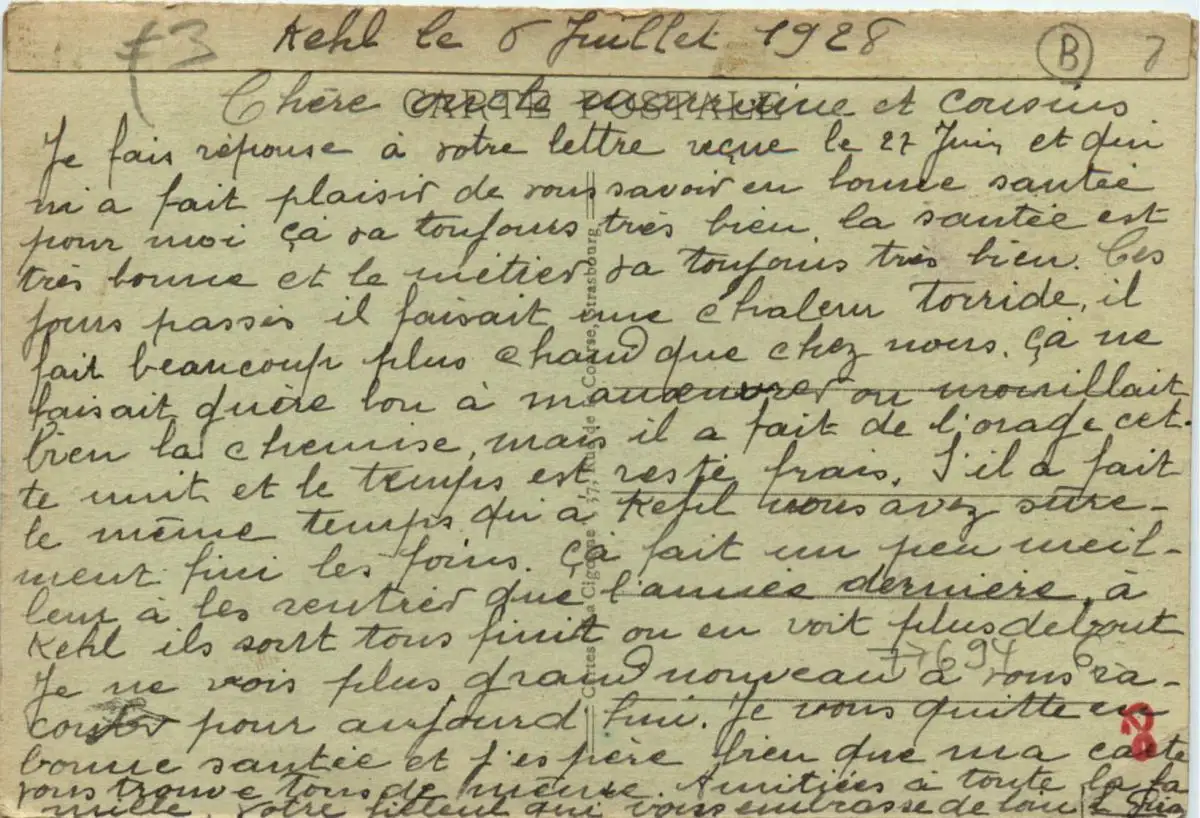 Kehl le 6 Juillet 1928
B
CARTE POSTALE
Chère oncle marraine et cousins
Je fais réponse à votre lettre reçue le 27 Juin et qui
m'a fait plaisir de vous savoir en bonne santée
pour moi ça va toujours très bien la santée est
très bonne et le métier va toujours très bien. Ces
jours passés il faisait une chaleur torride, il
fait beaucoup plus chaud que chez nous. ça ne
faisait guère bon à manœuvrer on mouillait
bien la chemise, mais il a fait de l'orage cet-
te nuit et le temps est resté frais. S'il a fait
le même temps qu'à Kehl vous avez sûre-
ment fini les foins. Ça fait un peu meil-
leur à les rentrer que l'année dernière, à
Kehl ils sont tous finit on en voit plus debout
Je ne vois plus grand nouveau à vous ra-
conter pour aujourd'hui. Je vous quitte en
bonne santée et j'espère bien que ma carte
vous trouve tous de même. Amitiées à toute la fa
mille, votre filleul qui vous embrasse de loin
Cartes La Cigogne, 37, Rue de la Course, Strasbourg